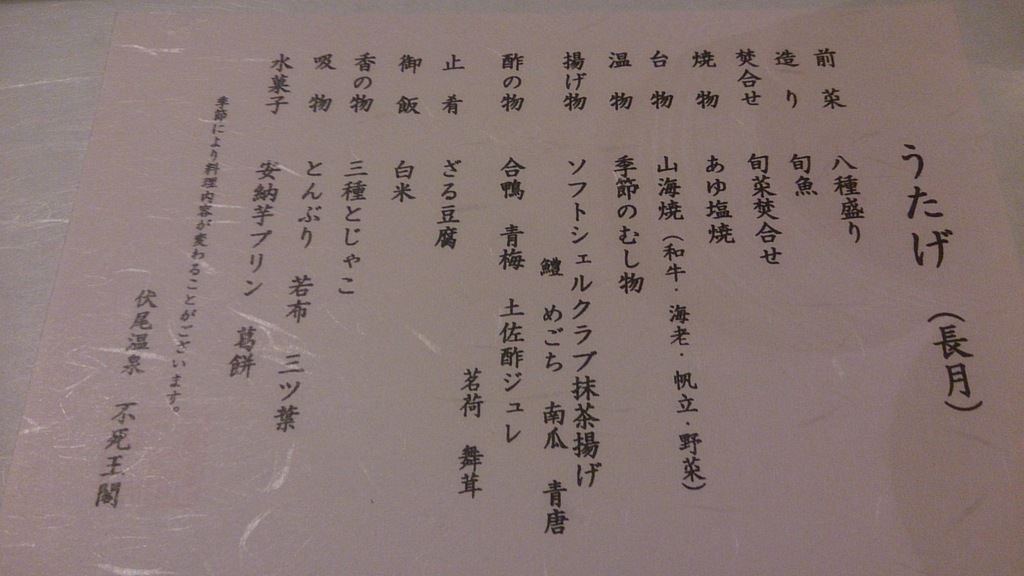 うたげ (長月)
前菜 八種盛り
造り 旬魚
焚合せ 旬菜焚合せ
焼物 あゆ塩焼
台物 山海焼 (和牛・海老・帆立・野菜)
温物 季節のむし物
揚げ物 ソフトシェルクラブ抹茶揚げ
鱧 めごち 南瓜 青唐
酢の物 合鴨 青梅 土佐酢ジュレ
茗荷 舞茸
止肴 ざる豆腐
御飯 白米
香の物 三種とじゃこ
吸物 とんぶり 若布 三ツ葉
水菓子 安納芋プリン 葛餅
季節により料理内容が変わることがございます。
伏尾温泉 不死王閣